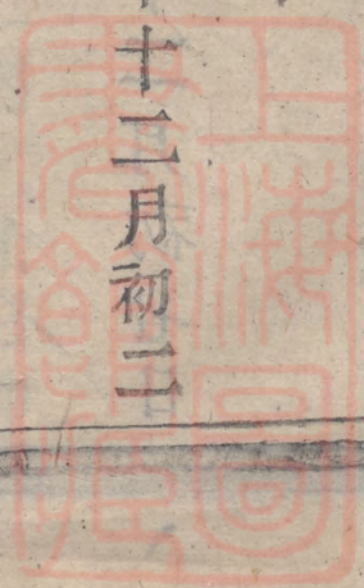 十二月初二
上海圖
書館藏